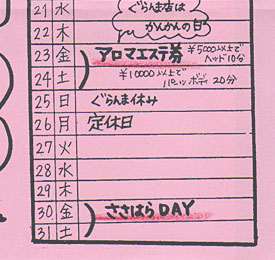 21 水 ぐらんま店は
22 木 かんかんの日
23 金 アロマエステ券 ¥5000以上で
ヘッド10分
24 土 ¥10000以上で
パーツボディ 20分
25 日 ぐらんま休み
26 月 定休日
27 火
28 水
29 木
30 金 ささはらDAY
31 土